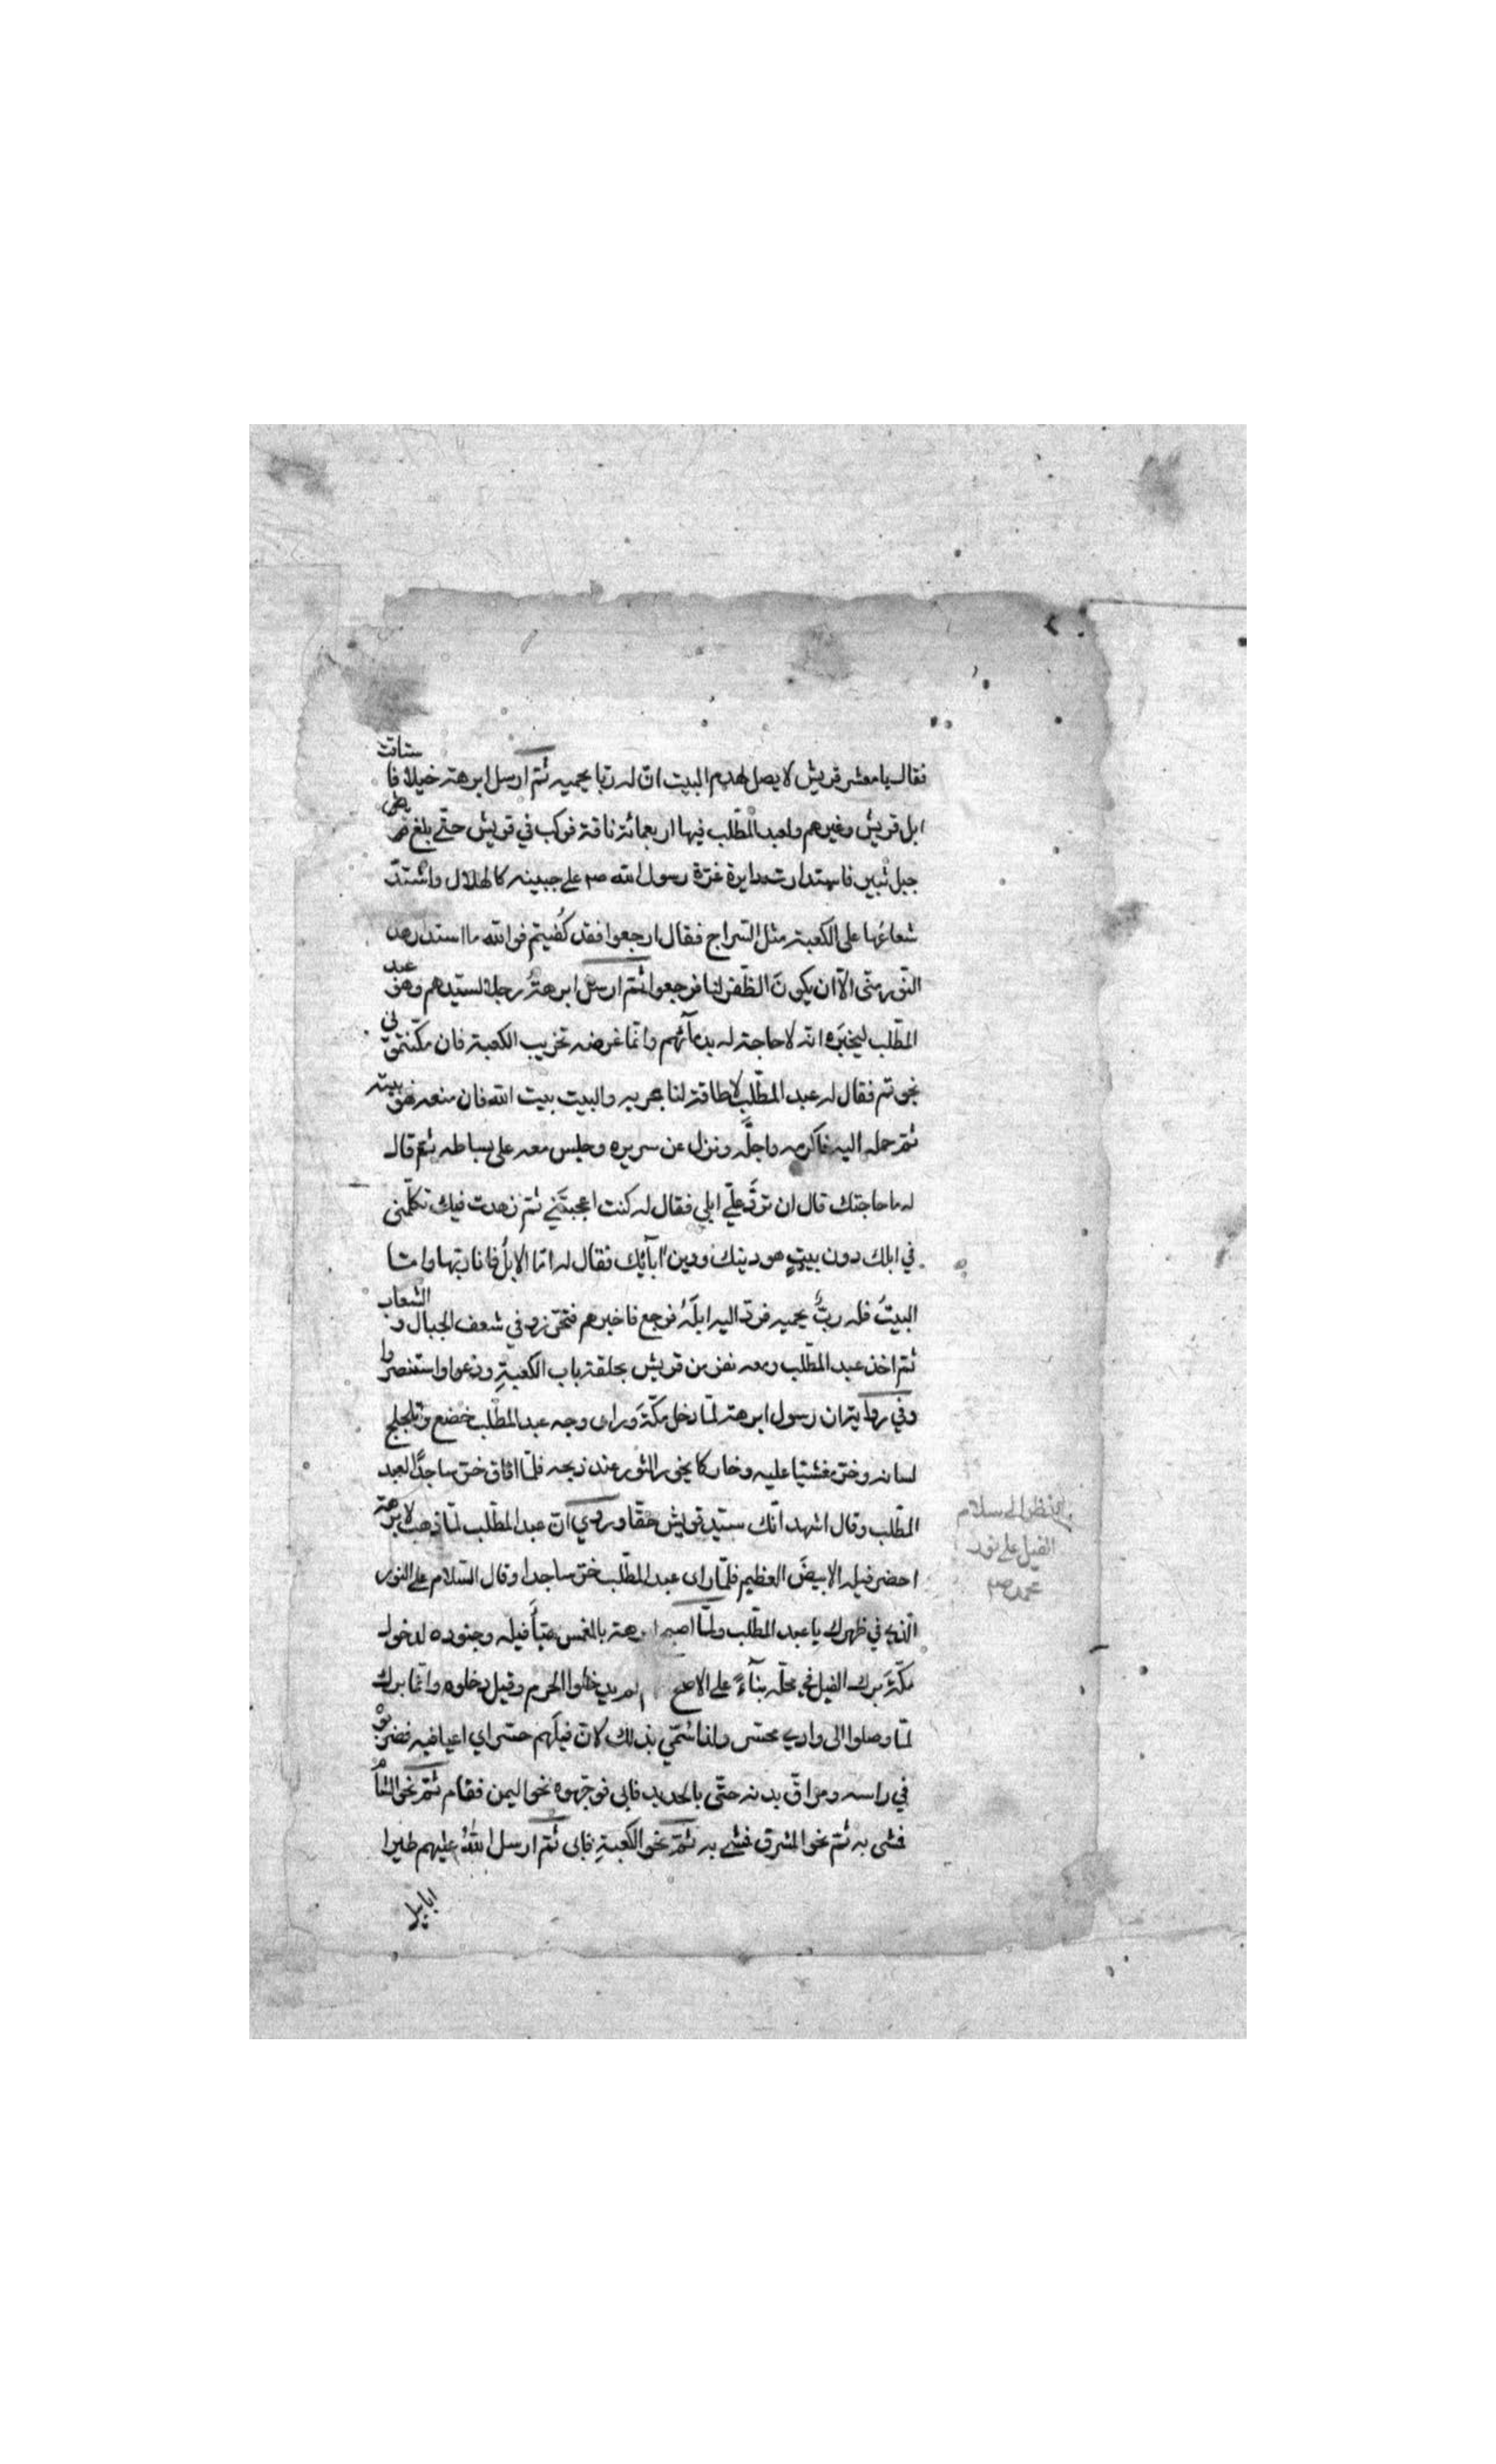 فقال يا معشر قريش لا يصل لهدم البيت انّ له ربّا يحميه ثمّ ارسل ابرهة خيلا فاستاقت
ابل قريش وغيرهم ولعبد المطّلب فيها اربعمائة ناقة فركب في قريش حتّى بلغ
جبل ثبير فاستدارت دايرة غرّة رسول الله صم على جبينه كالهلال واشتدّ
شعاعُها على الكعبة مثل السّراج فقال ارجعوا فقد كُفيتم فوالله ما استدار هذا
النّور منّى الّا ان يكونَ الظّفر لنا فرجعوا ثمّ ارسل ابرهةُ رجلا لسيّدهم وهو عبد
المطّلب ليخبرَه انّه لا حاجة له بدمآئهم وانّما غرضه تخريب الكعبة فان مكّنتمونى
نجوتم فقال له عبد المطّلب لا طاقة لنا بحربه والبيت بيت الله فان منعه فهو بيته
ثمّ حمله اليه فاكرمه واجلّه ونزل عن سريره وجلس معه على بساطه ثمّ قال
له ما حاجتك قال ان تردَّ علىّ ابلي فقال له كنت اعجبتَني ثمّ زهدت فيك تكلّمنى
في ابلك دون بيتٍ هو دينك ودين ابآئك فقال له امّا الابلُ فانا ربّها وامّا
البيتُ فله ربٌّ يحميه فردّ اليه ابلَهُ فرجع فاخبرهم فتحرّزو في شعف الجبال والشعاب
ثمّ اخذ عبد المطّلب ومعه نفر من قريش بحلقة باب الكعبةِ ودعوا واستنصروا
وفي رواية ان رسول ابرهة لمّا دخل مكّةَ وراى وجه عبد المطّلب خضع وتلجلج
لسانه وخرّ مغشيّا عليه وخار كما يخور الثور عند ذبحه فلمّا افاق خرّ ساجدًا لعبد
المطّلب وقال اشهد انّك سيّد قريش حقّا وروي انّ عبد المطّلب لمّا ذهب لابرهة
احضر فيله الابيضَ العظيم فلمّا راى عبد المطّلب خرّ ساجدا وقال السّلام على النور
الّذي في ظهرك يا عبد المطّلب ولمّا اصبح ابرهة بالمغمس هيّأَ فيله وجنوده لدخول
مكّةَ برك الفيل في محلّه بنآءً على الاصح لم يدخلوا الحرم وقيل دخلوه وانّما برك
لمّا وصلوا الى وادي محسّر ولذا سُمّي بذلك لانّ فيلَهم حسر اي اعيا فيه فضربوه
في راسه ومراقّ بدنه حتّى بالحديد فابى فوجّهوه نحو اليمن فقام ثمّ نحو الشام
فمشى به ثمّ نحو المشرق فمشى به ثمّ نحو الكعبةِ فابى ثمّ ارسل اللهُ عليهم طيرا
ابابيل
انظر الى سلام
الفيل على نور
محمد صم